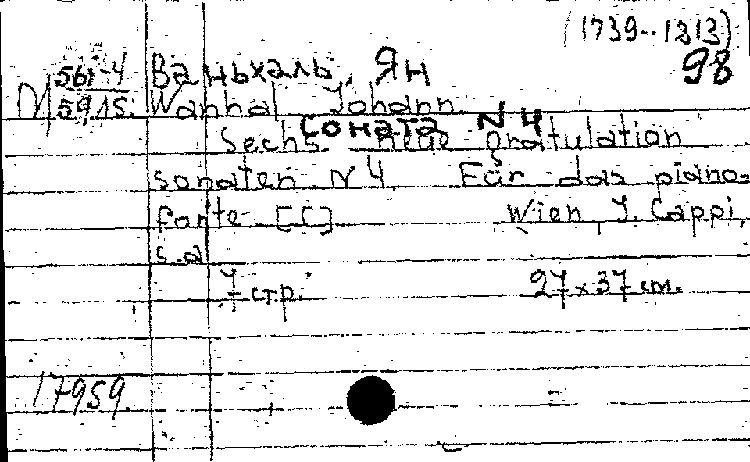 (1739-1813)
98
М 561-4/5915. Ваньхаль, Ян
Wanhal Johann
Соната N 4
Sechs neue gratulation
sonaten N 4 Für das piano-
forte [C] Wien, J. Cappi,
s.a
7 стр. 27 x 37 см.
17959